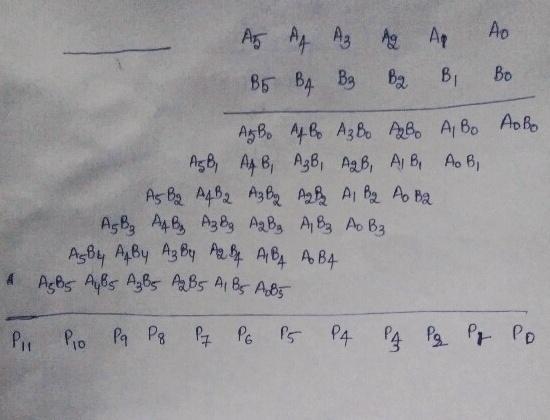 A5 A4 A3 A2 A1 A0
B5 B4 B3 B2 B1 B0
A5B0 A4B0 A3B0 A2B0 A1B0 A0B0
A5B1 A4B1 A3B1 A2B1 A1B1 A0B1
A5B2 A4B2 A3B2 A2B2 A1B2 A0B2
A5B3 A4B3 A3B3 A2B3 A1B3 A0B3
A5B4 A4B4 A3B4 A2B4 A1B4 A0B4
A5B5 A4B5 A3B5 A2B5 A1B5 A0B5
P11 P10 P9 P8 P7 P6 P5 P4 P3 P2 P1 P0